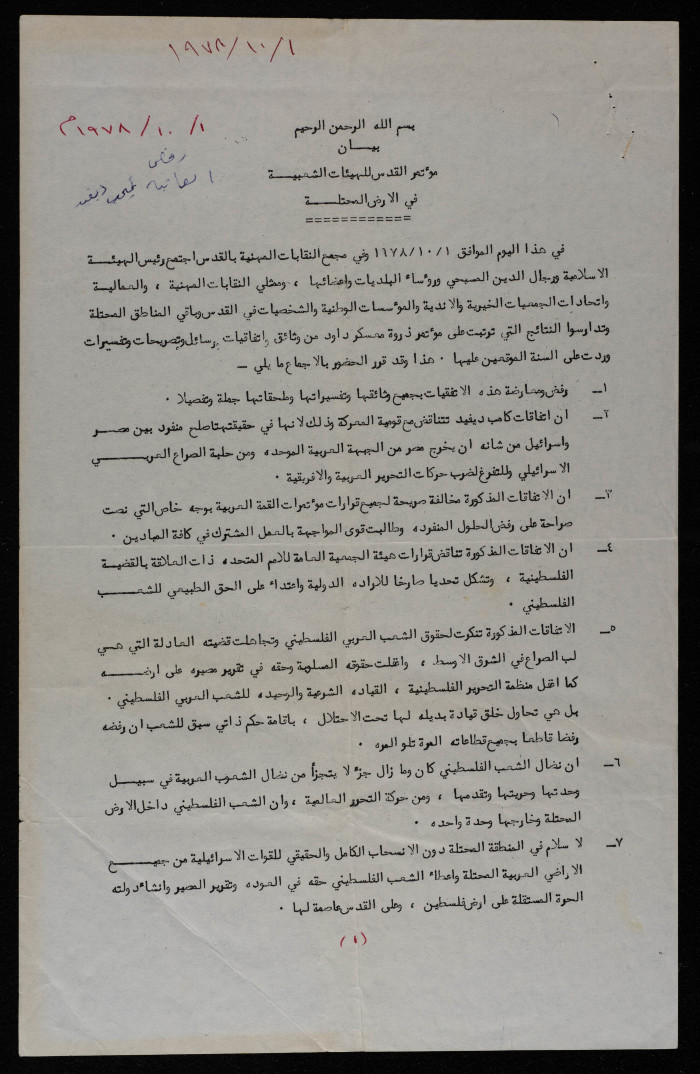 ١٩٧٨/١٠/١
١٩٧٨/١٠/١م
رفض
اتفاقية كامب ديفيد
بسم الله الرحمن الرحيم
بيـــان
مؤتمر القدس للهيئات الشعبيـــة
في الارض المحتلـــة
============
في هذا اليوم الموافق ١٦٧٨/١٠/١ وفي مجمع النقابات المهنية بالقدس اجتمع رئيس الهيئــة
الاسلامية ورجال الدين المسيحي وروؤساء البلديات واعضائها ، وممثلي النقابات المهنية ، والعمالية
واتحادات الجمعيات الخيرية والاندية والمؤسسات الوطنية والشخصيات في القدس وباقي المناطق المحتلة
وتدارسوا النتائج التي ترتبت على مؤتمر ذروة معسكر داود من وثائق واتفاقيات ورسائل وتصريحات وتفسيرات
وردت على السنة الموقعين عليها ٠ هذا وقد قرر الحضور بالاجماع ما يلي –
١ــ رفض ومعارضة هذه الاتفقيات بجميع وثائقها وتفسيراتها وملحقاتها جملة وتفصيلا ٠
٢ــ ان اتفاقات كامب ديفيد تتناقض مع قومية المعركة وذلك لانها في حقيقتها صلح منفرد بين مصــر
واسرائيل من شانه ان يخرج مصر من الجبهة العربية الموحده ومن حلبة الصراع العربـــــي
الاسرائيلي وللتفرغ لضرب حركات التحرير العربية والافريقية ٠
٣ــ ان الاتفاقات المذكورة مخالفة صريحة لجميع قرارات مؤتمرات القمة العربية بوجه خاص التي نصت
صراحة على رفض الحلول المنفوده وطالبت قوى المواجهة بالعمل المشترك في كافة الميادين ٠
٤ــ ان الاتفاقات المذكورة تناقض قرارات هيئة الجمعية العامة للامم المتحده ذات العلاقة بالقضيــة
الفلسطينية ، وتشكل تحديا صارخا للاراده الدولية واعتداء على الحق الطبيعي للشعــــب
الفلسطيني ٠
٥ــ الاتفاقات المذكورة تنكرت لحقوق الشعب العربي الفلسطيني وتجاهلت قضيته العادلة التي هــي
لب الصراع في الشرق الاوسط ، واغفلت حقوقه المسلوبة وحقه في تقرير مصيره على ارضــــه
كما اغفل منظمة التحرير الفلسطينية ، القياده الشرعية والوحيده للشعب العربي الفلسطيني ٠
بل هي تحاول خلق قيادة بديله لها تحت الاحتلال ، باقامة حكم ذاتي سبق للشعب ان رفضه
رفضا قاطعا بجميع قطاعاته المرة تلو المره ٠
٦ــ ان نضال الشعب الفلسطيني كان وما زال جزء لا يتجزأ من نضال الشعوب العربية في سبيــل
وحدتها وحريتها وتقدمها ، ومن حركة التحرر العالمية ، وان الشعب الفلسطيني داخل الارض
المحتلة وخارجها وحدة واحده ٠
٧ــ لا سلام في المنطقة المحتلة دون الانسحاب الكامل والحقيقي للقوات الاسرائيلية من جميـــــع
الاراضي العربية المحتلة واعطاء الشعب الفلسطيني حقه في العوده وتقرير المصير وانشاء دولته
الحرة المستقلة على ارض فلسطين ، وعلى القدس عاصمة لها ٠
(١)